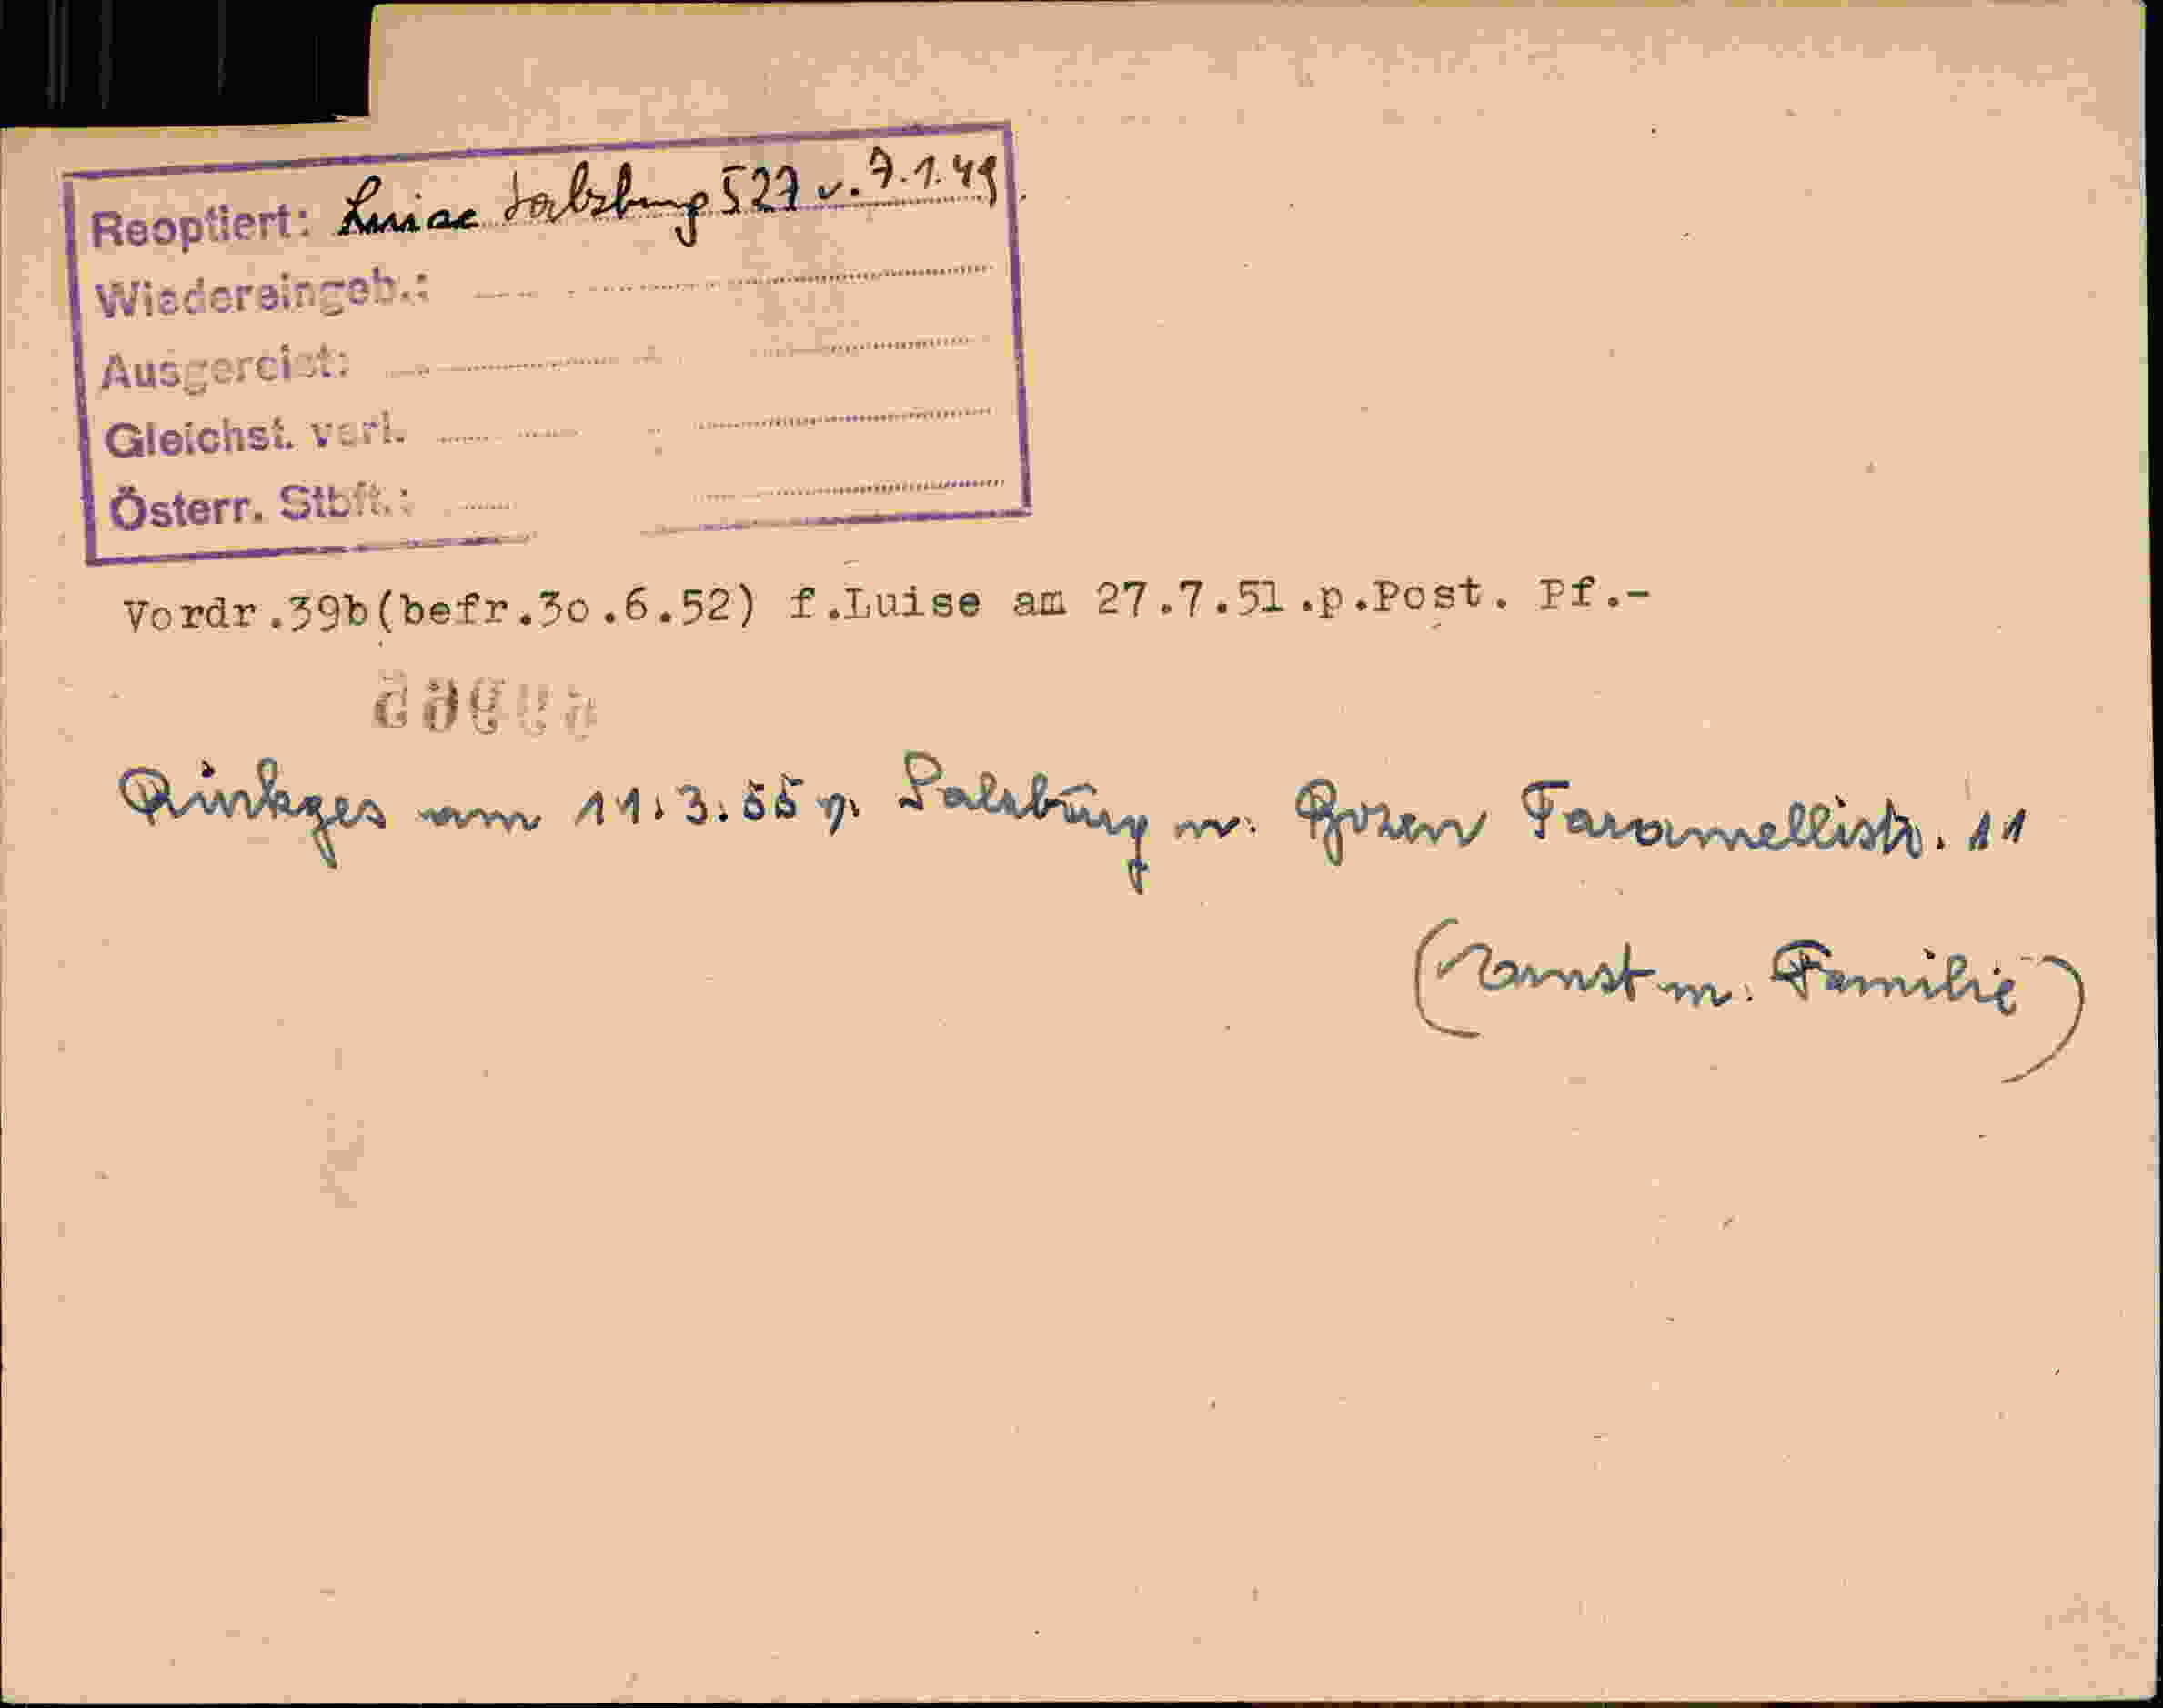 Reoptiert: Luise Salzburg 527 v. 7.1.49.
Wiedereingeb.:
Ausgereist:
Gleichst. verl.
Österr. Stbft.:
Vordr.39b(befr.30.6.52) f.Luise am 27.7.51.p.Post. Pf.-
Rückges am 11.3.55 v. Salzburg n. Bozen Taramellistr. 11
(Ernst m. Familie)